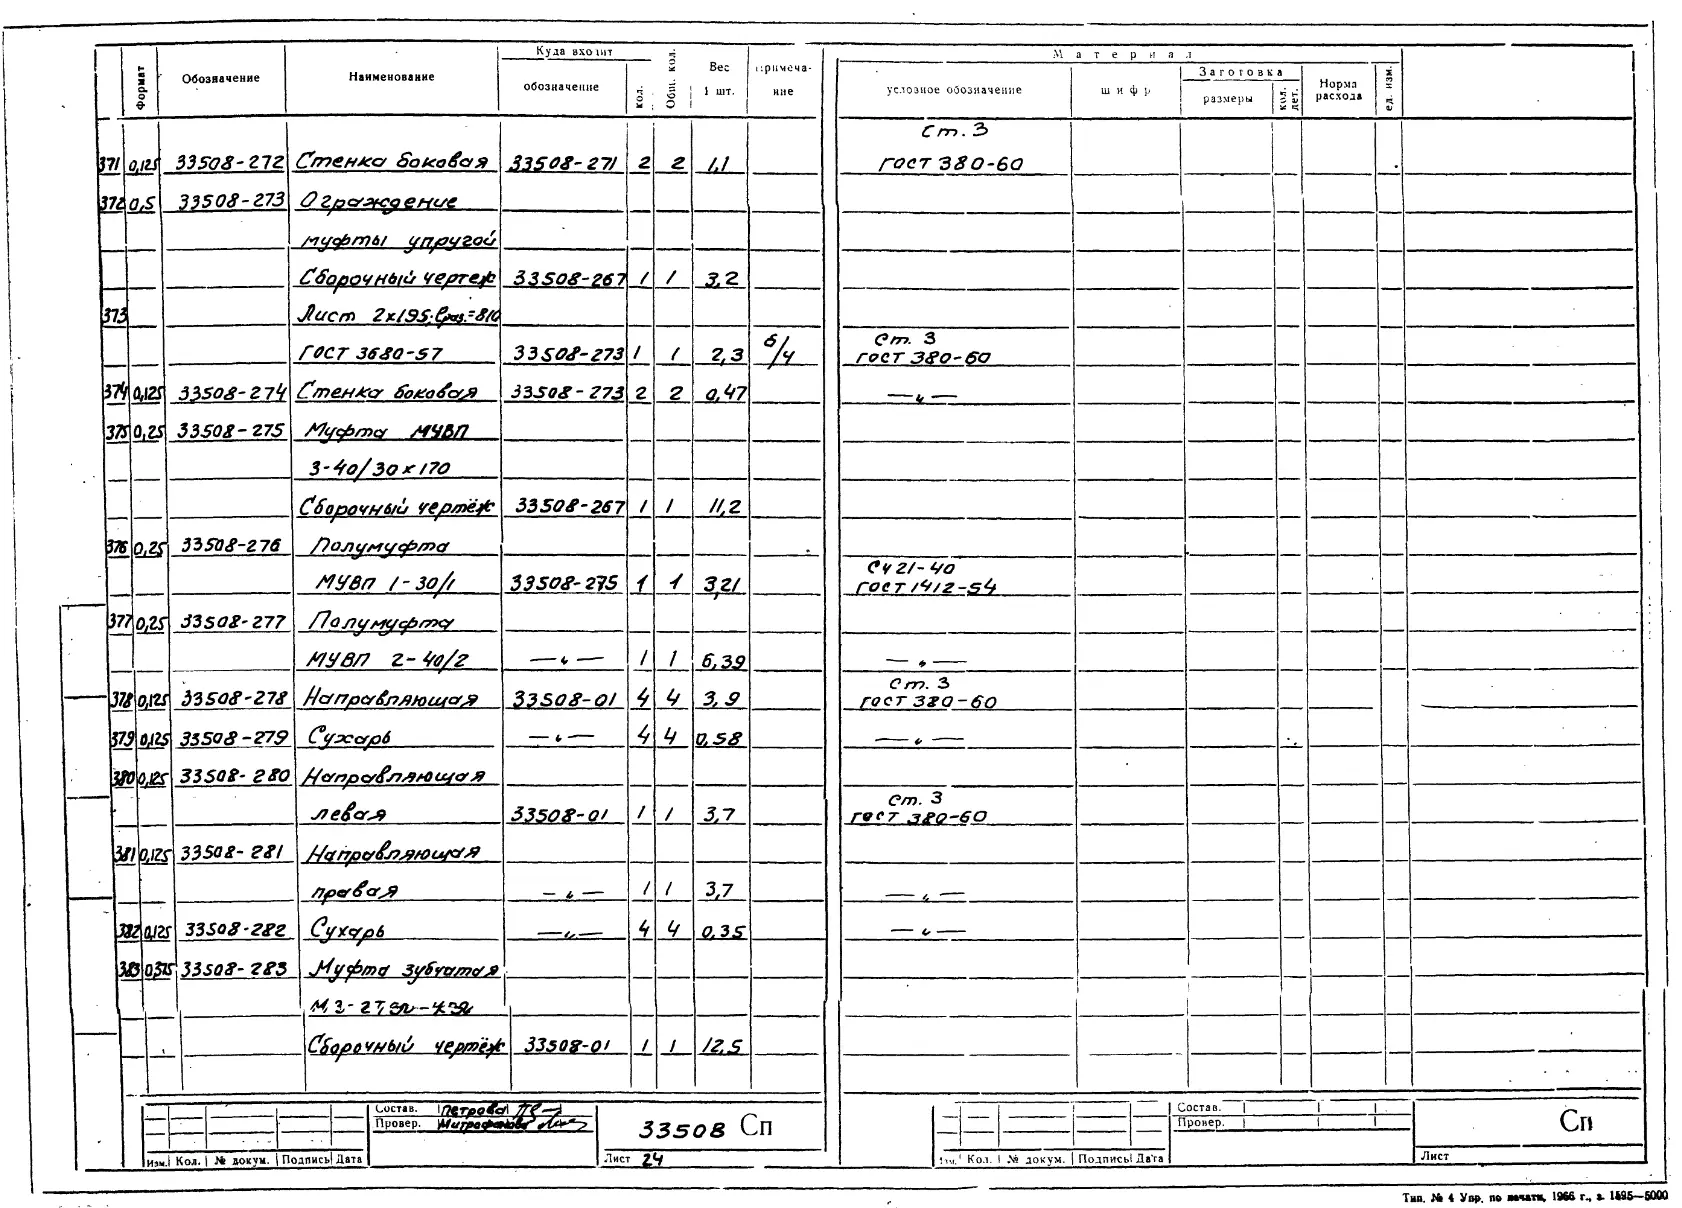 Формат Обозначение Наименование Куда входит обозначение кол. Общ. кол. Вес 1 шт. примечание Материал условное обозначение шифр Заготовка размеры кол. дет. Норма расхода ед. изм.
Ст. 3
371 0,125 33508-272 Стенка боковая 33508-271 2 2 1,1 ГОСТ 380-60
372 0,5 33508-273 Ограждение
муфты упругой
Сборочный чертеж 33508-267 1 1 3,2
373 Лист 2х195; ℓраз.=810
ГОСТ 3680-57 33508-273 1 1 2,3 б/ч Ст. 3 ГОСТ 380-60
374 0,125 33508-274 Стенка боковая 33508-273 2 2 0,47 —〃—
375 0,25 33508-275 Муфта МУВП
3-40/30х170
Сборочный чертёж 33508-267 1 1 11,2
376 0,25 33508-276 Полумуфта
МУВП 1-30/1 33508-275 1 1 3,21 СЧ 21-40 ГОСТ 1412-54
377 0,25 33508-277 Полумуфта
МУВП 2-40/2 —〃— 1 1 6,39 —〃—
378 0,125 33508-278 Направляющая 33508-01 4 4 3,9 Ст. 3 ГОСТ 380-60
379 0,125 33508-279 Сухарь —〃— 4 4 0,58 —〃—
380 0,125 33508-280 Направляющая
левая 33508-01 1 1 3,7 Ст. 3 ГОСТ 380-60
381 0,125 33508-281 Направляющая
правая —〃— 1 1 3,7 —〃—
382 0,125 33508-282 Сухарь —〃— 4 4 0,35 —〃—
383 0,375 33508-283 Муфта зубчатая
Сборочный чертёж 33508-01 1 1 12,5
Состав. Петрова
Провер. Митрофанова
33508 Сп
Изм. Кол. № докум. Подпись Дата Лист 24
Состав.
Провер.
Сп
Изм. Кол. № докум. Подпись Дата Лист
Тип. № 4 Упр. по печати, 1966 г., з. 1595—5000